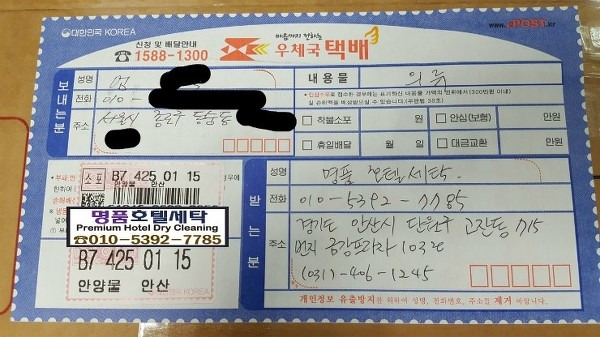 대한민국 KOREA
신청 및 배달안내
☎1588-1300
마음까지 전하는
우체국 택배
www.ePOST.kr
보내는분
성명
전화 010-
주소 서울시
내용물 의류
착불소포 원
안심(보험) 만원
휴일배달 월 일
대금교환 만원
소포
B7 425 01 15
안양물 안산
명품호텔세탁
Premium Hotel Dry Cleaning
☎010-5392-7785
B7 425 01 15
안양물 안산
KOREA
받는분
성명 명품 호텔세탁.
전화 010-5392-7785
주소 경기도 안산시 단원구 고잔동 715
번지 금강프라자 103호
(031)-406-1245
개인정보 유출방지를 위하여 성명, 전화번호, 주소를 제거 바랍니다.